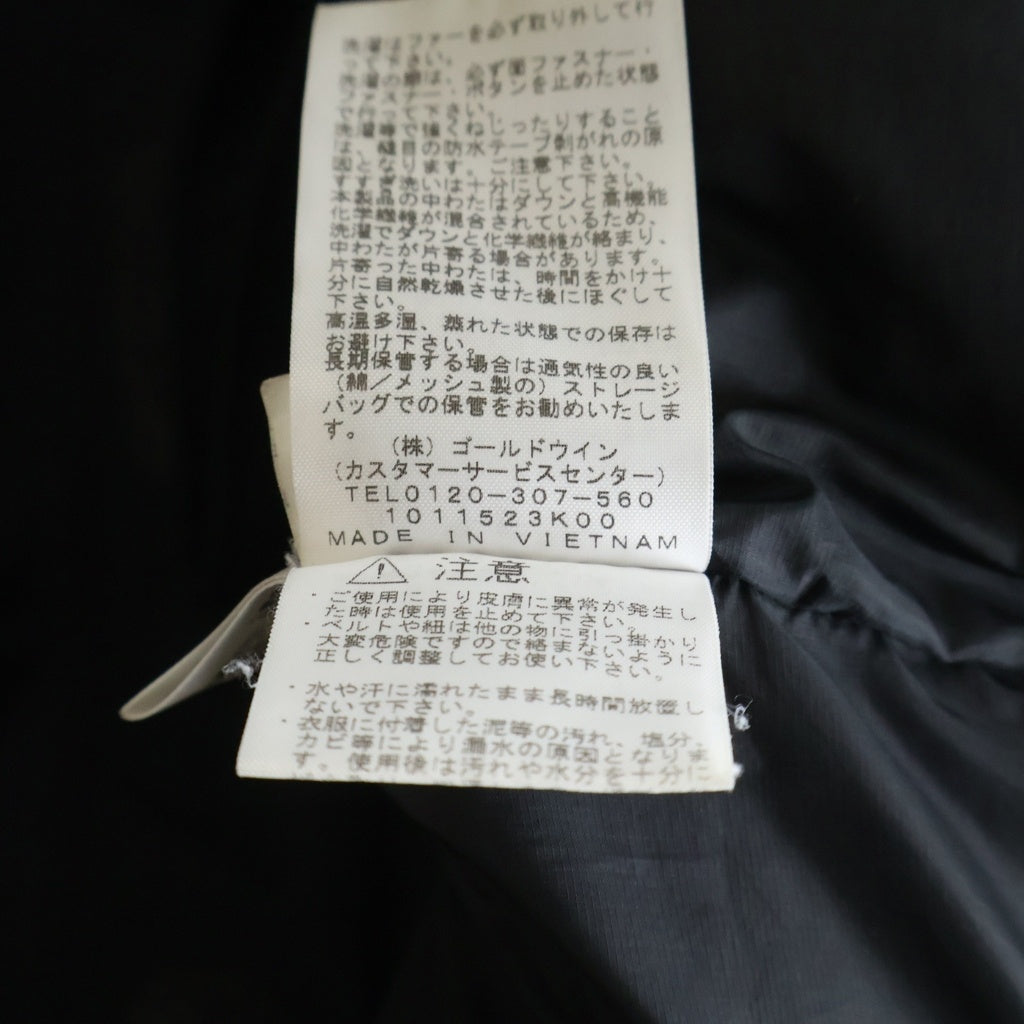 洗濯はファーを必ず取り外して行
って下さい。
洗濯の際は、必ず面ファスナー・
ファスナー、ボタンを止めた状態
で行って下さい。
洗濯等で強くねじったりすること
は、縫目の防水テープ剥がれの原
因となります。ご注意下さい。
すすぎ洗いは十分にして下さい。
本製品の中わたはダウンと高機能
化学繊維が混合されているため、
洗濯でダウンと化学繊維が絡まり、
中わたが片寄る場合があります。
片寄った中わたは、時間をかけ十
分に自然乾燥させた後にほぐして
下さい。
高温多湿、蒸れた状態での保存は
お避け下さい。
長期保管する場合は通気性の良い
(綿/メッシュ製の)ストレージ
バッグでの保管をお勧めいたしま
す。
(株)ゴールドウイン
(カスタマーサービスセンター)
TEL0120-307-560
1011523K00
MADE IN VIETNAM
注意
・ご使用により皮膚に異常が発生し
た時は使用を止めて下さい。
・ベルトや紐は他の物に引っ掛かり
大変危険ですので絡まないように
正しく調整してお使い下さい。
・水や汗に濡れたまま長時間放置し
ないで下さい。
・衣服に付着した泥等の汚れ、塩分、
カビ等により漏水の原因となりま
す。使用後は汚れや水分を十分に